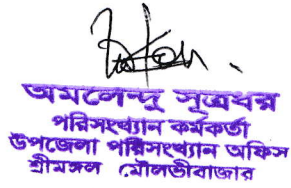 অমলেন্দু সূত্রধর
পরিসংখ্যান কর্মকর্তা
উপজেলা পরিসংখ্যান অফিস
শ্রীমঙ্গল মৌলভীবাজার